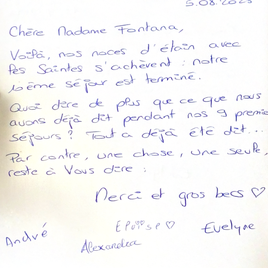 5.08.2023
Chère Madame Fontana,
Voilà, nos noces d'étain avec
les Saintes s'achèvent : notre
10ème séjour est terminé.
Quoi dire de plus que ce que nous
avons déjà dit pendant nos 9 premie
séjours ? Tout a déjà été dit...
Par contre, une chose, une seule,
reste à Vous dire :
Merci et gros becs ♡
André
Alexandra
Evelyne